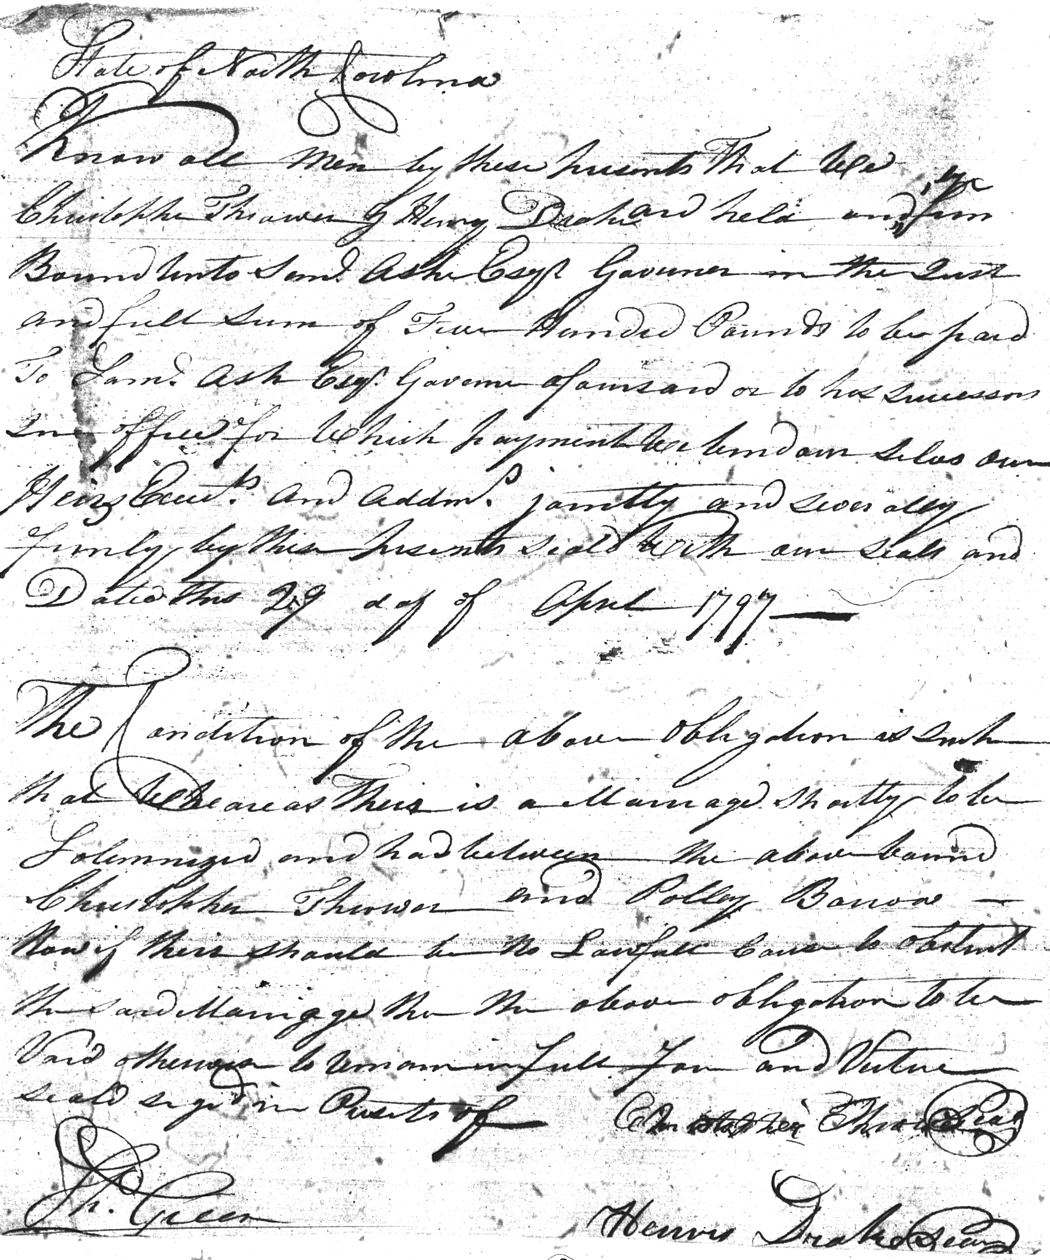 State of North Carolina
Know all Men by these presents That We
Christopher Thrower & Henry Drake ard held and firm
Bound unto Saml. Ashe Esqr Governer in the Just
and full Sum of Five Hundred Pounds to be paid
To Saml. Ash Esqr. Governer aforesaid or to his successors
In office for Which payment We bind our selves our
Heirs Executs. And Addms. jointly and severally
firmly by these presents seald With our seals and
Dated this 29 day of April 1797
The Condition of the above obligation is such
that Wheareas Their is a Marriage shortly to be
Solemnized and had between the above bound
Christopher Thrower and Polley Barrow
Now if their should be no Lawfull Cause to obstruct
the said Marriage then the above obligation to be
Void otherwise to remain in full Force and Virtue
seald signd in Presents of Christopher Thrower Seal
Jh. Green
Henry Drake Seal